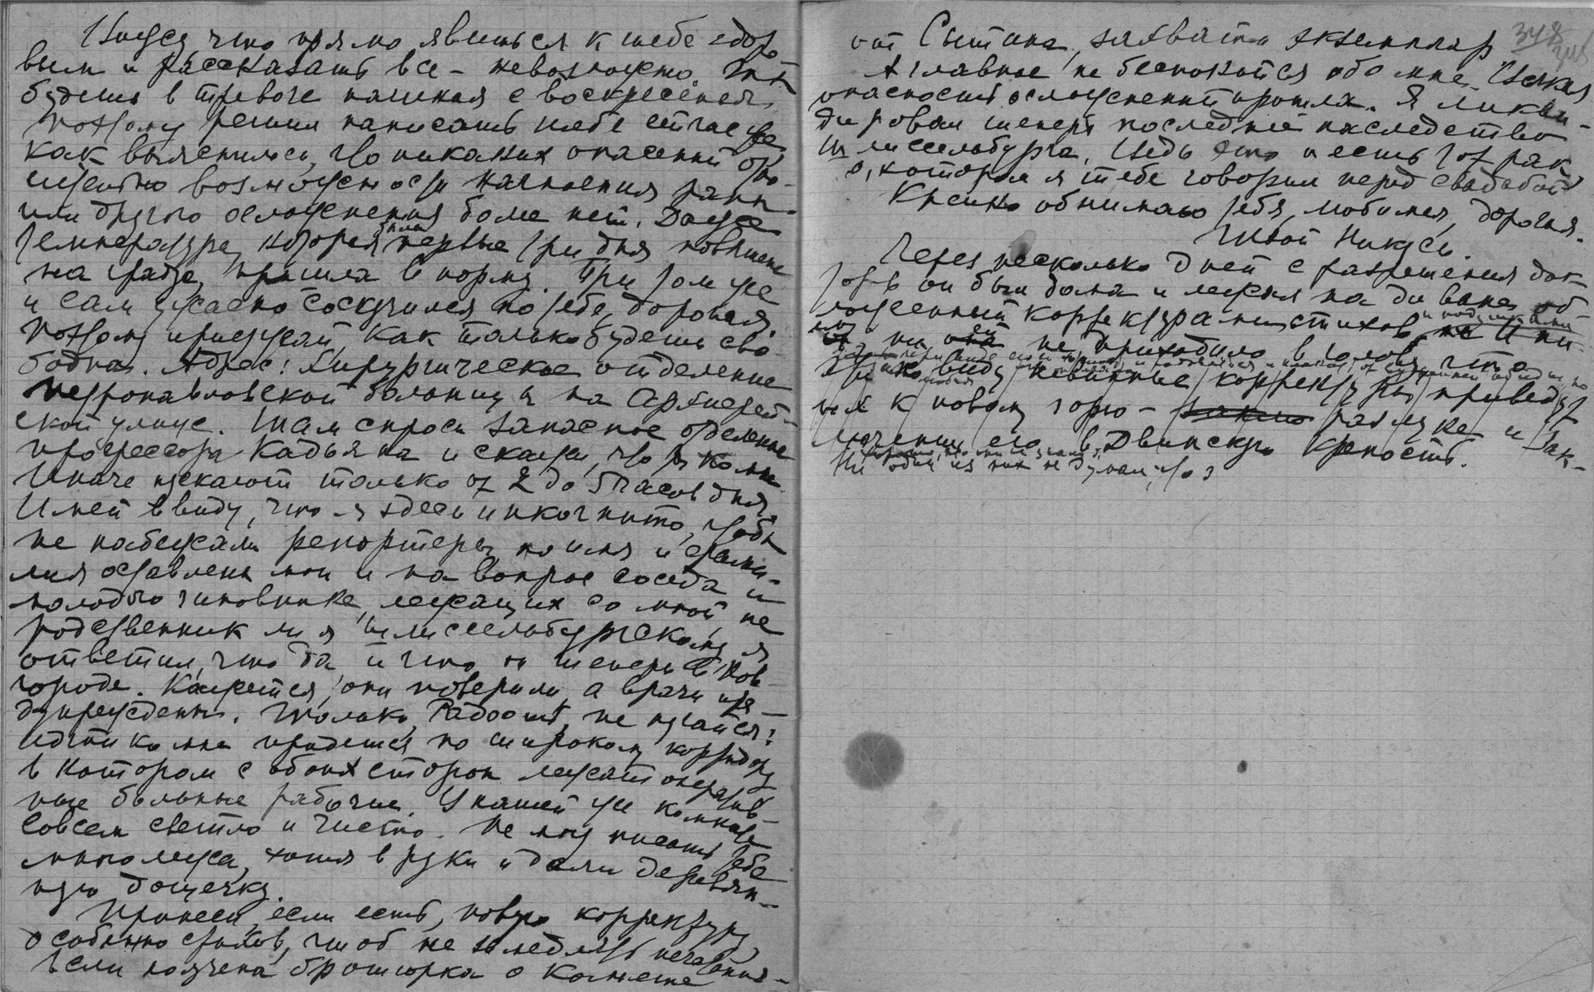 Кнуся, что прямо явиться к тебе здоро-
вым и рассказать все - невозможно. Ты
будешь в тревоге начиная с воскресенья,
поэтому решил написать тебе сейчас же
как выяснилось, что никаких опасений отно-
сительно возможности нагноения раны
или другого осложнения более нет. Даже
температура, которая первые три дня повышена
на градус, пришла в норму. При том уже
и сам ужасно соскучился по тебе, дорогая.
Поэтому приезжай, как только будешь сво-
бодна. Адрес: Хирургическое отделение
Петропавловской больницы на Архиерей-
ской улице. Там спроси запасное отделение
профессора Кадьяна и скажи, что ко мне.
Иначе пускают только от 2 до 5 часов дня.
Имей ввиду, что я здесь инкогнито, чтобы
не набежали репортеры, но имя и фами-
лия оставлены мои и на вопрос соседа и
молодого чиновника, лежащих со мной, не
родственник ли я шлиссельбургскому я
ответил, что да и что он теперь в Нов-
городе. Кажется, они поверили, а врачи пре-
дупреждены. Только, Радость, не пугайся:
идти ко мне придется по широкому корридору
в котором с обоих сторон лежат оператив-
ные больные рабочие. У нашей же комнате
совсем светло и чисто. Не могу писать тебе
много лежа, хотя в руки и дали деревян-
ную дощечку.
Принеси, если есть, новую корректуру
особенно стихов, чтоб не замедлять печатание
Если получена брошюрка о Комете
от Сытина, захвати экземпляр
А главное не беспокойся обо мне. Всякая
опасность осложнений прошла. Я ликви-
дировал теперь последнее наследство
Шлиссельбурга. Ведь это и есть тот рак
о, котором я тебе говорил перед свадьбой
Крепко обнимаю тебя, любимая, дорогая.
Твой Никуся.
Через несколько дней с разрешения док-
тора он был дома и лежал на диване об-
ложенный корректурами стихов и подушками. И ни
ему ни ей не приходило в голову, что
эти на виду невинные корректуры приведут
их к новому горю - разлуке и зак-
лючению его в Двинскую крепость.
Ни один из них не думал, что
348